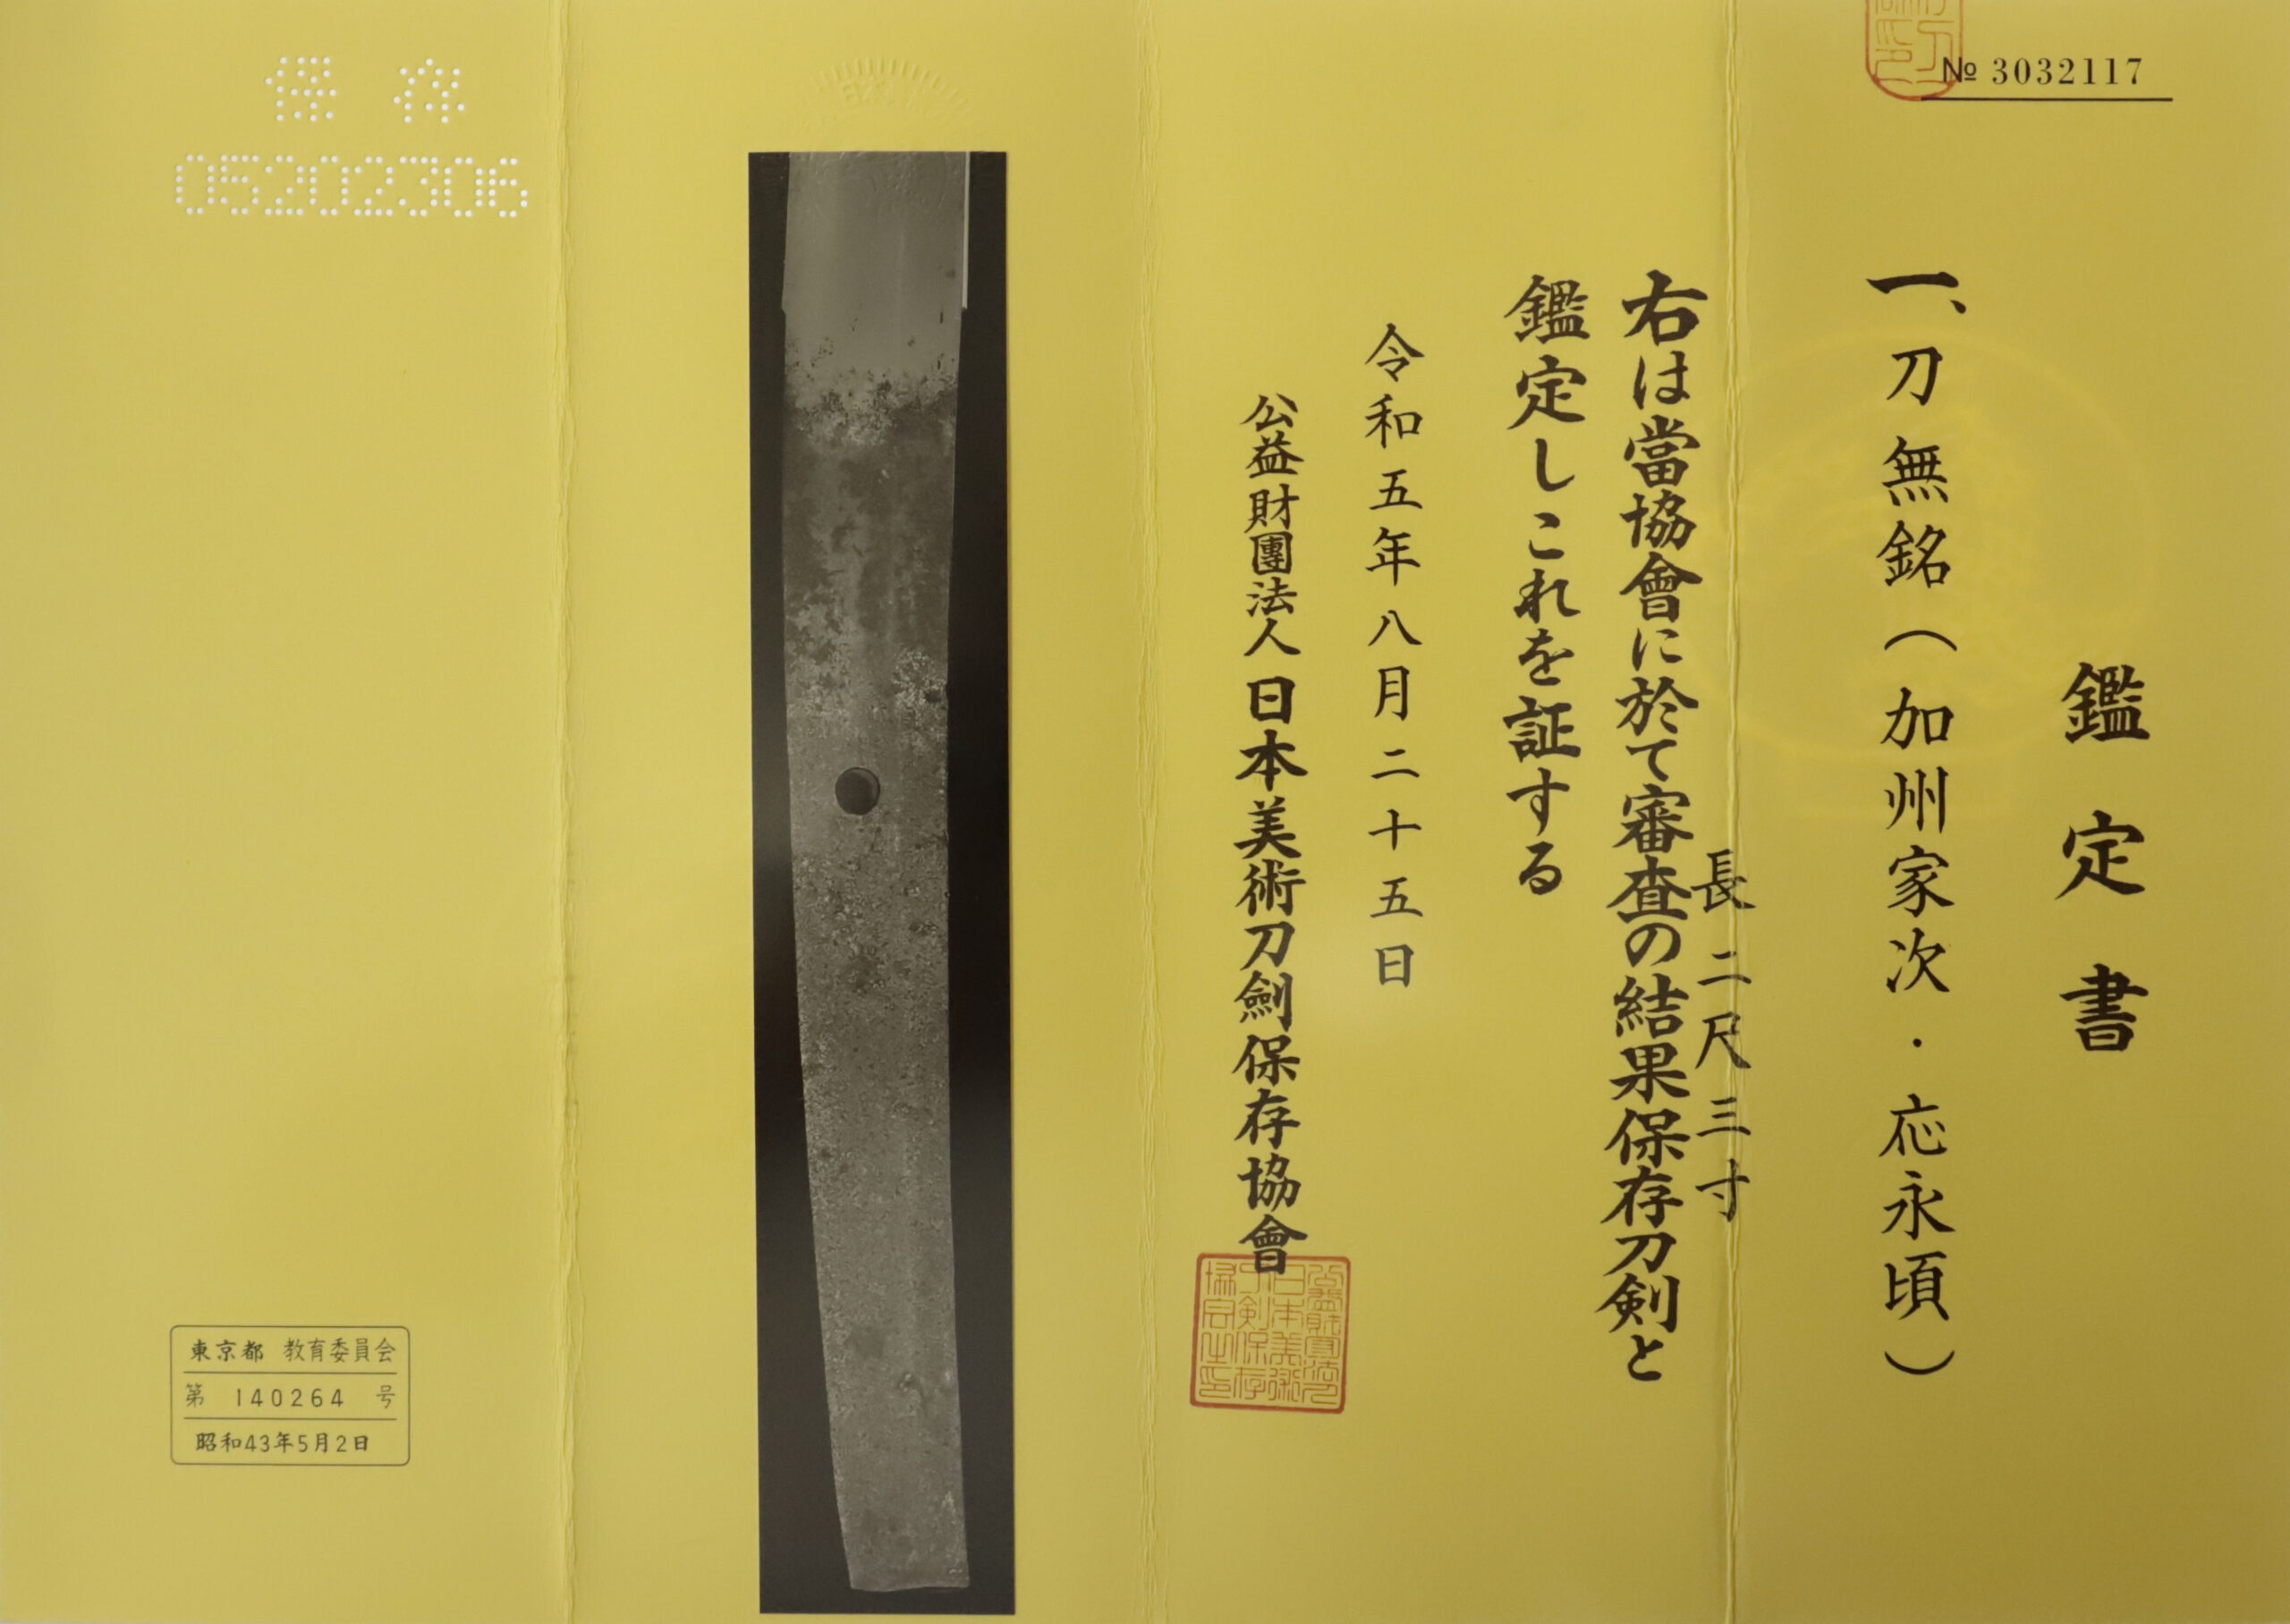 № 3032117
鑑定書
一、刀 無銘(加州家次・応永頃)
長 二尺三寸
右は當協會に於て審査の結果保存刀剣と
鑑定しこれを証する
令和五年八月二十五日
公益財團法人 日本美術刀劍保存協會
保存
05202306
東京都 教育委員会
第 140264 号
昭和43年5月2日